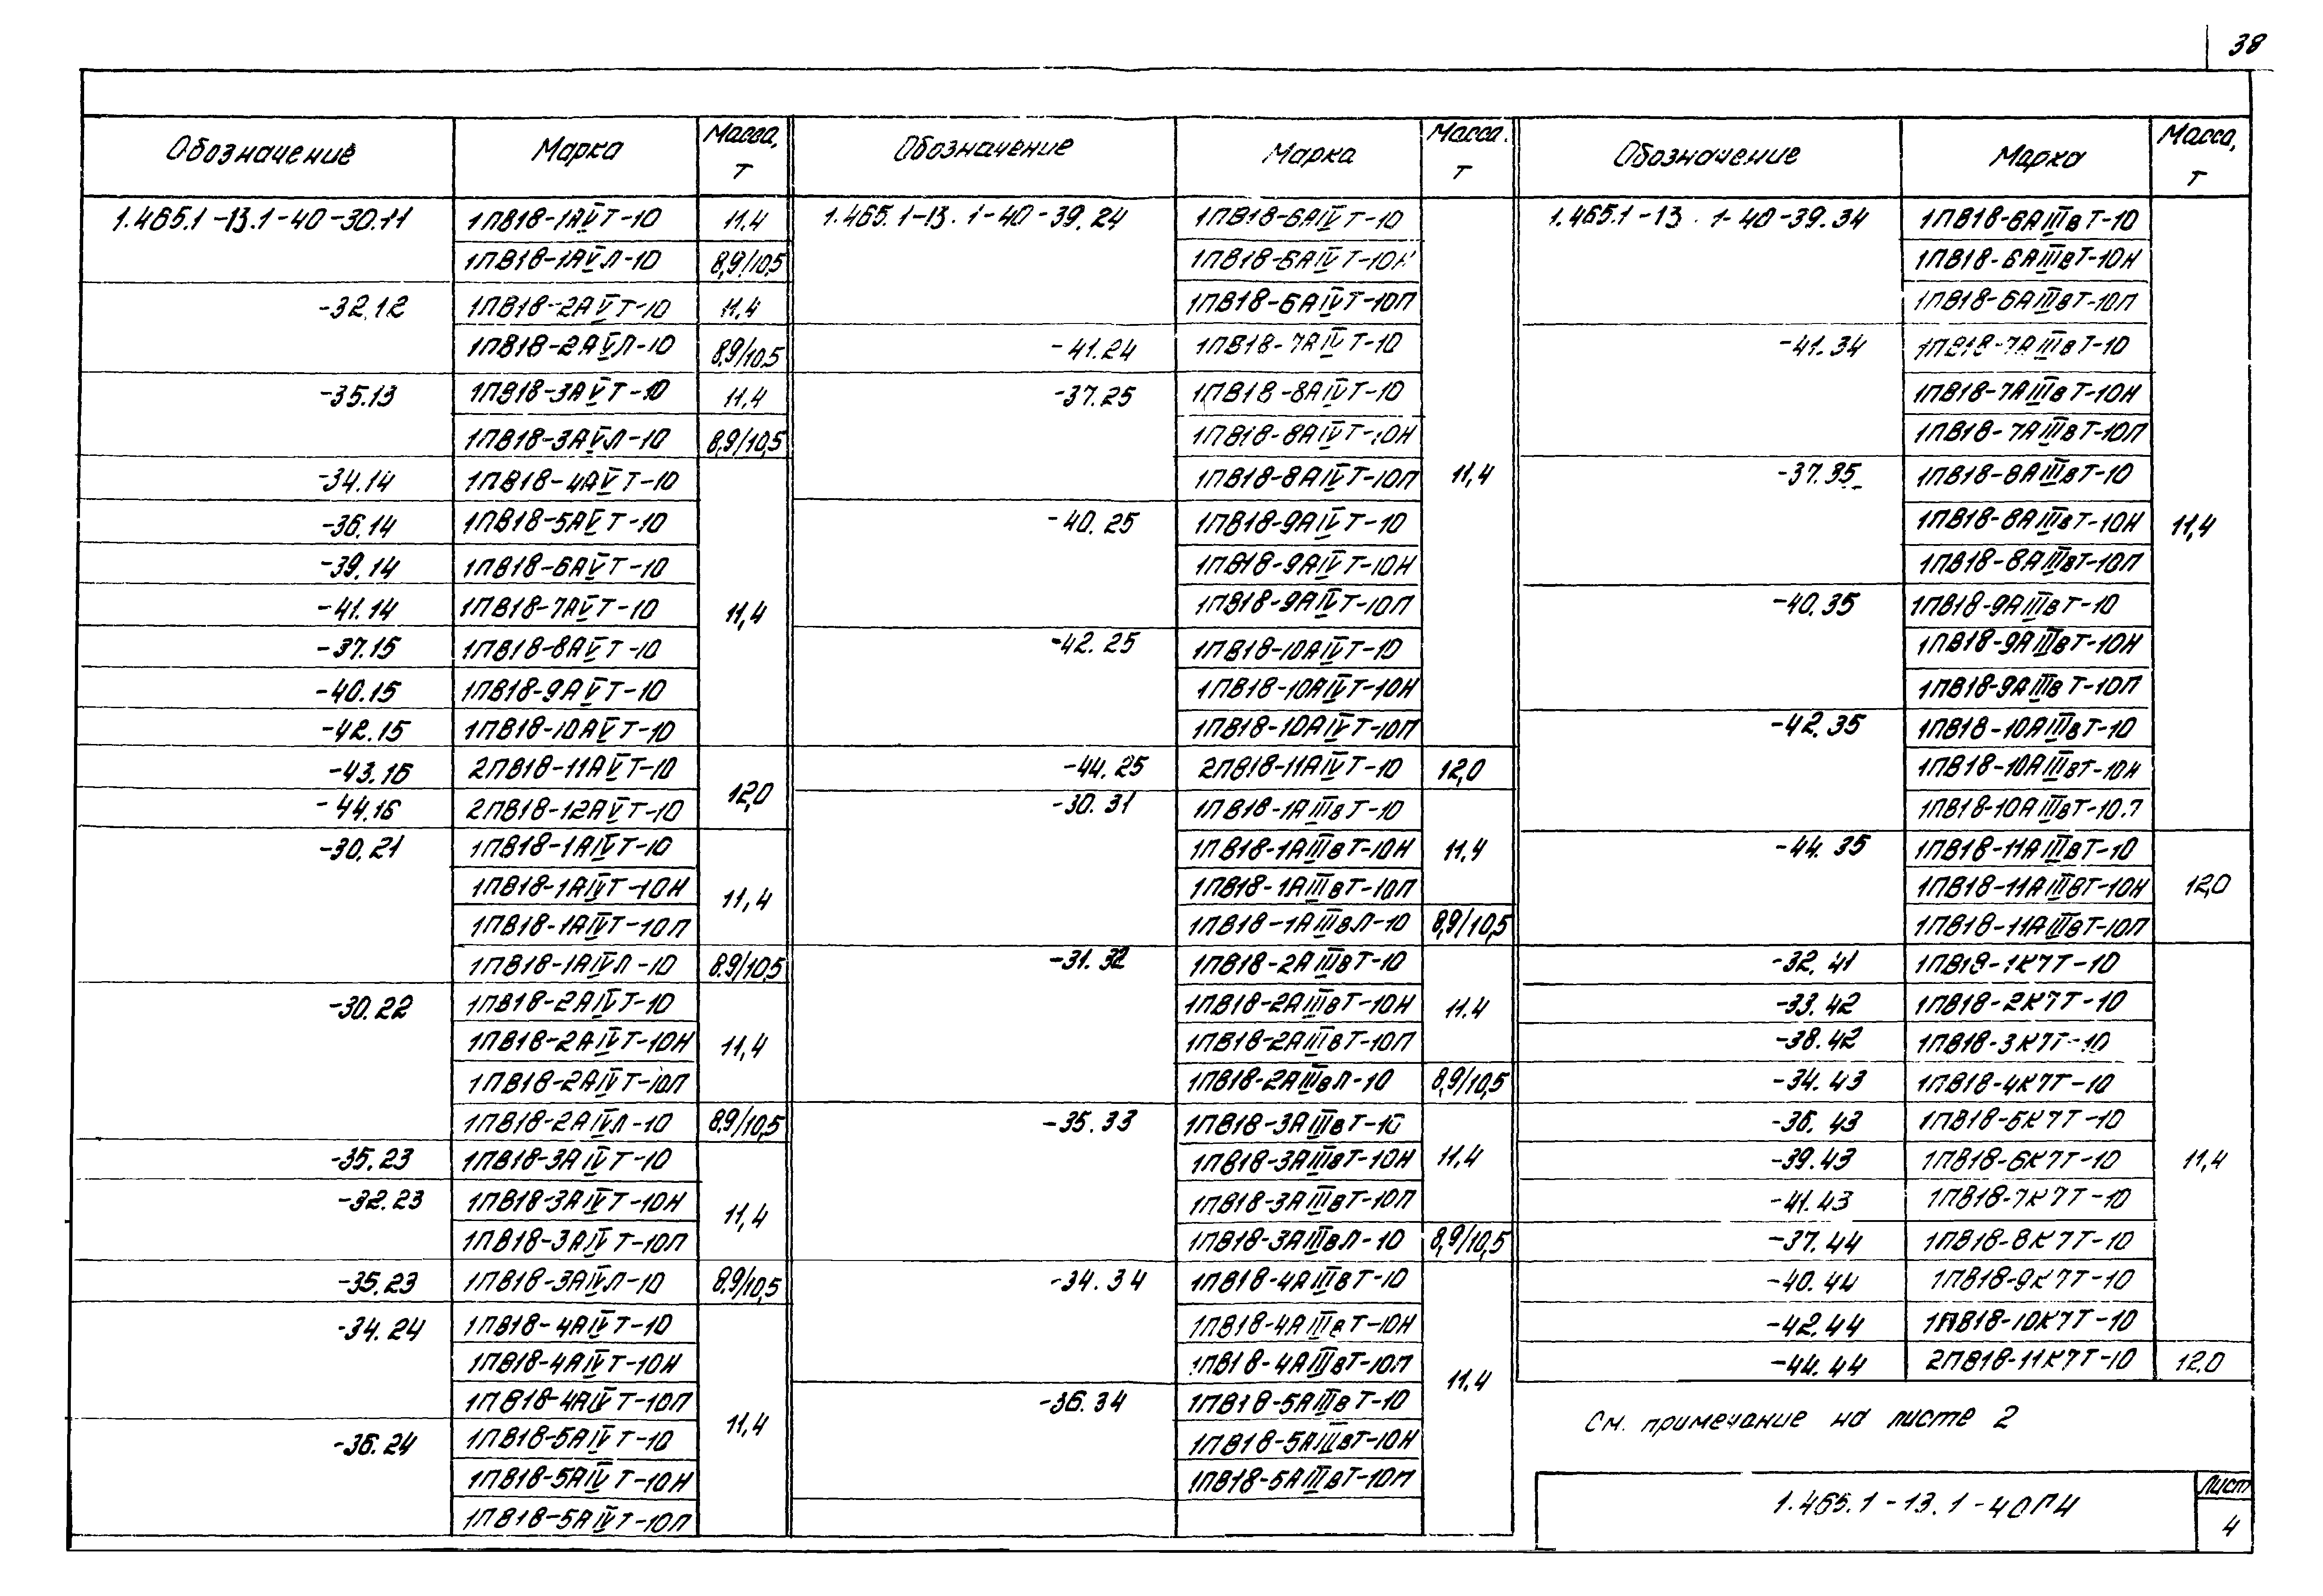 38
Обозначение Марка Масса, т
1.465.1-13.1-40-30.11 1ПВ18-1АⅤТ-10 11,4
1ПВ18-1АⅤЛ-10 8,9/10,5
-32.12 1ПВ18-2АⅤТ-10 11,4
1ПВ18-2АⅤЛ-10 8,9/10,5
-35.13 1ПВ18-3АⅤТ-10 11,4
1ПВ18-3АⅤЛ-10 8,9/10,5
-34.14 1ПВ18-4АⅤТ-10
-36.14 1ПВ18-5АⅤТ-10
-39.14 1ПВ18-6АⅤТ-10
-41.14 1ПВ18-7АⅤТ-10 11,4
-37.15 1ПВ18-8АⅤТ-10
-40.15 1ПВ18-9АⅤТ-10
-42.15 1ПВ18-10АⅤТ-10
-43.16 2ПВ18-11АⅤТ-10
-44.16 2ПВ18-12АⅤТ-10 12,0
-30.21 1ПВ18-1АⅣТ-10
1ПВ18-1АⅣТ-10Н 11,4
1ПВ18-1АⅣТ-10П
1ПВ18-1АⅣЛ-10 8,9/10,5
-30.22 1ПВ18-2АⅣТ-10
1ПВ18-2АⅣТ-10Н 11,4
1ПВ18-2АⅣТ-10П
1ПВ18-2АⅣЛ-10 8,9/10,5
-35.23 1ПВ18-3АⅣТ-10
-32.23 1ПВ18-3АⅣТ-10Н 11,4
1ПВ18-3АⅣТ-10П
-35.23 1ПВ18-3АⅣЛ-10 8,9/10,5
-34.24 1ПВ18-4АⅣТ-10
1ПВ18-4АⅣТ-10Н
1ПВ18-4АⅣТ-10П 11,4
-36.24 1ПВ18-5АⅣТ-10
1ПВ18-5АⅣТ-10Н
1ПВ18-5АⅣТ-10П
Обозначение Марка Масса. т
1.465.1-13.1-40-39.24 1ПВ18-6АⅣТ-10
1ПВ18-6АⅣТ-10Н
1ПВ18-6АⅣТ-10П
-41.24 1ПВ18-7АⅣТ-10
-37.25 1ПВ18-8АⅣТ-10
1ПВ18-8АⅣТ-10Н
1ПВ18-8АⅣТ-10П 11,4
-40.25 1ПВ18-9АⅣТ-10
1ПВ18-9АⅣТ-10Н
1ПВ18-9АⅣТ-10П
-42.25 1ПВ18-10АⅣТ-10
1ПВ18-10АⅣТ-10Н
1ПВ18-10АⅣТ-10П
-44.25 2ПВ18-11АⅣТ-10 12,0
-30.31 1ПВ18-1АⅢвТ-10
1ПВ18-1АⅢвТ-10Н 11,4
1ПВ18-1АⅢвТ-10П
1ПВ18-1АⅢвЛ-10 8,9/10,5
-31.32 1ПВ18-2АⅢвТ-10
1ПВ18-2АⅢвТ-10Н 11.4
1ПВ18-2АⅢвТ-10П
1ПВ18-2АⅢвЛ-10 8,9/10,5
-35.33 1ПВ18-3АⅢвТ-10
1ПВ18-3АⅢвТ-10Н 11,4
1ПВ18-3АⅢвТ-10П
1ПВ18-3АⅢвЛ-10 8,9/10,5
-34.34 1ПВ18-4АⅢвТ-10
1ПВ18-4АⅢвТ-10Н
1ПВ18-4АⅢвТ-10П 11.4
-36.34 1ПВ18-5АⅢвТ-10
1ПВ18-5АⅢвТ-10Н
1ПВ18-5АⅢвТ-10П
Обозначение Марка Масса, т
1.465.1-13.1-40-39.34 1ПВ18-6АⅢвТ-10
1ПВ18-6АⅢвТ-10Н
1ПВ18-6АⅢвТ-10П
-41.34 1ПВ18-7АⅢвТ-10
1ПВ18-7АⅢвТ-10Н
1ПВ18-7АⅢвТ-10П
-37.35 1ПВ18-8АⅢвТ-10
1ПВ18-8АⅢвТ-10Н 11,4
1ПВ18-8АⅢвТ-10П
-40.35 1ПВ18-9АⅢвТ-10
1ПВ18-9АⅢвТ-10Н
1ПВ18-9АⅢвТ-10П
-42.35 1ПВ18-10АⅢвТ-10
1ПВ18-10АⅢвТ-10Н
1ПВ18-10АⅢвТ-10.П
-44.35 1ПВ18-11АⅢвТ-10
1ПВ18-11АⅢвТ-10Н 12,0
1ПВ18-11АⅢвТ-10П
-32.41 1ПВ18-1К7Т-10
-33.42 1ПВ18-2К7Т-10
-38.42 1ПВ18-3К7Т-10
-34.43 1ПВ18-4К7Т-10
-36.43 1ПВ18-5К7Т-10
-39.43 1ПВ18-6К7Т-10 11,4
-41.43 1ПВ18-7К7Т-10
-37.44 1ПВ18-8К7Т-10
-40.44 1ПВ18-9К7Т-10
-42.44 1ПВ18-10К7Т-10
-44.44 2ПВ18-11К7Т-10 12,0
См. примечание на листе 2
1.465.1-13.1-40ГИ
Лист
4